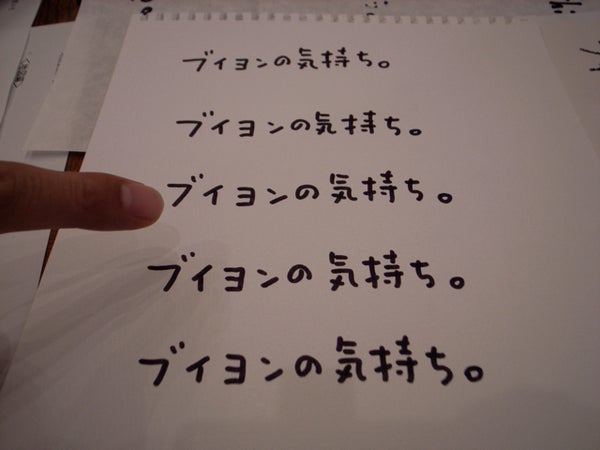 ブイヨンの気持ち。
ブイヨンの気持ち。
ブイヨンの気持ち。
ブイヨンの気持ち。
ブイヨンの気持ち。